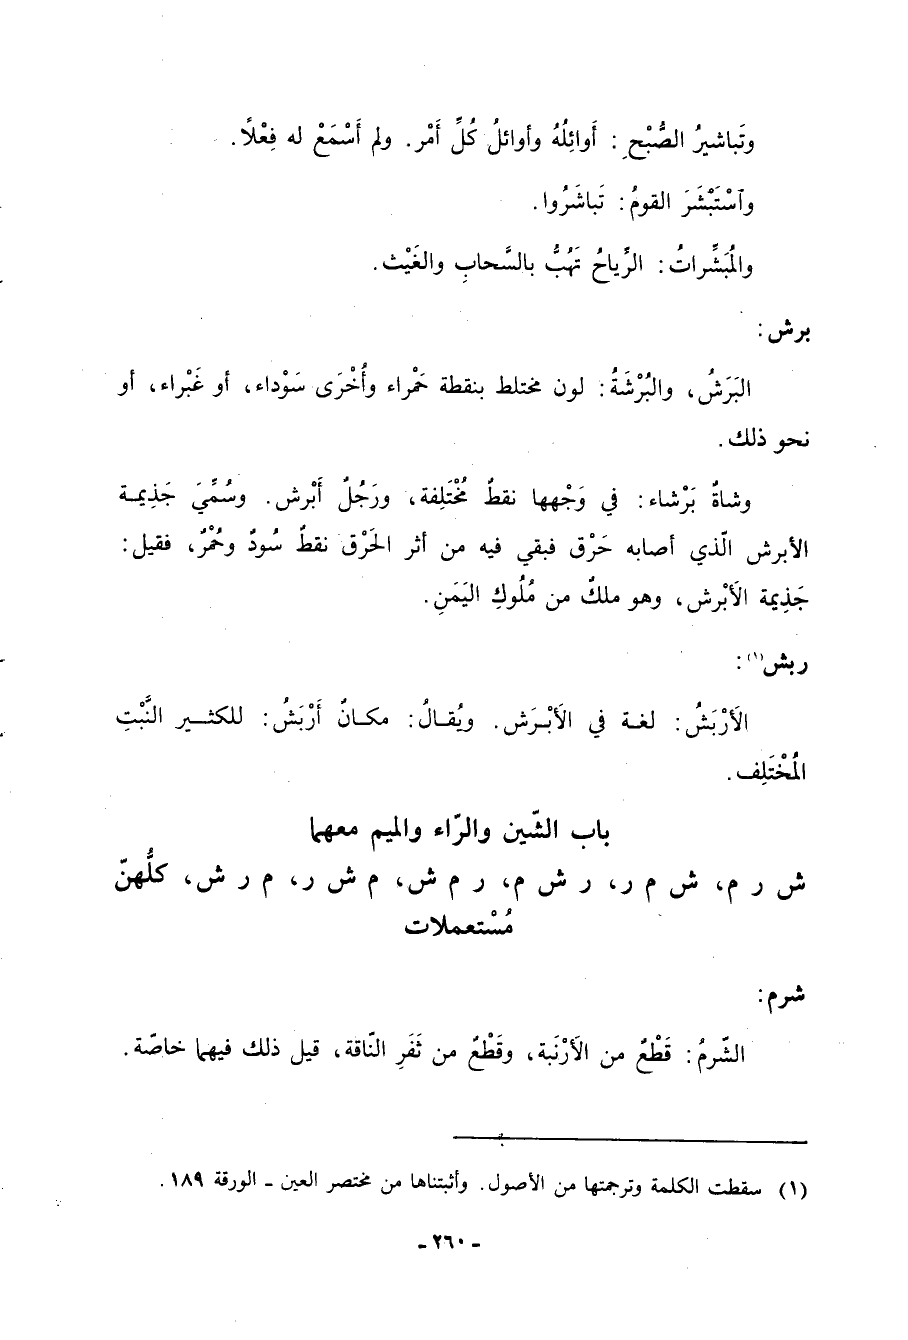 وتَباشيرُ الصُّبْحِ : أَوائِلُهُ وأوائلُ كُلِّ أَمْر. ولم أَسْمَعْ له فِعْلاً.
وٱسْتَبْشَرَ القومُ: تَباشَرُوا.
والمُبَشِّراتُ: الرِّياحُ تَهُبُّ بالسَّحابِ والغَيْث.
برش:
البَرَشُ، والبُرْشَةُ: لون مختلط بنقطة حَمْراء وأُخْرَى سَوْداء، أو غَبْراء، أو
نحو ذلك.
وشاةٌ بَرْشاء: في وَجْهها نقطٌ مُخْتَلِفة، ورَجُلٌ أَبْرش. وسُمِّيَ جَذِيمة
الأبرش الّذي أصابه حَرْق فبقي فيه من أثر الحَرْق نقطٌ سُودٌ وحُمْرٌ، فقيل:
جَذِيمة الأَبْرش، وهو ملكٌ من مُلُوكِ اليَمَنِ.
ربش(١):
الأَرْبَشُ: لغة في الأَبْرَش. ويُقالُ: مكانٌ أَرْبَشُ: للكثير النَّبْتِ
المُخْتَلِف.
باب الشّين والرّاء والميم معهما
ش ر م، ش م ر، ر ش م، ر م ش، م ش ر، م ر ش، كلُّهنّ
مُسْتعملات
شرم:
الشّرمُ: قَطْعٌ من الأَرْنَبة، وقَطْعٌ من ثَفَرِ النّاقة، قيل ذلك فيهما خاصّة.
(١) سقطت الكلمة وترجمتها من الأصول. وأثبتناها من مختصر العين ـ الورقة ١٨٩.
- ٢٦٠ -